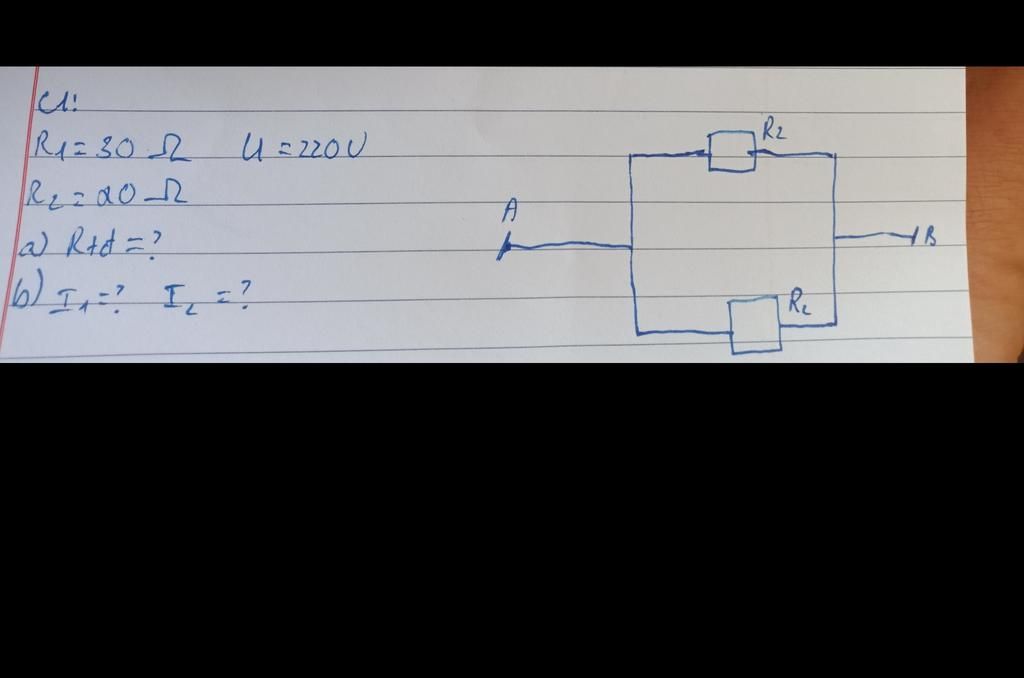 C1:
R1 = 30 Ω U = 220V
R2 = 20 Ω
a) Rtđ = ?
b) I1 = ? I2 = ?
R2
A
B
R2